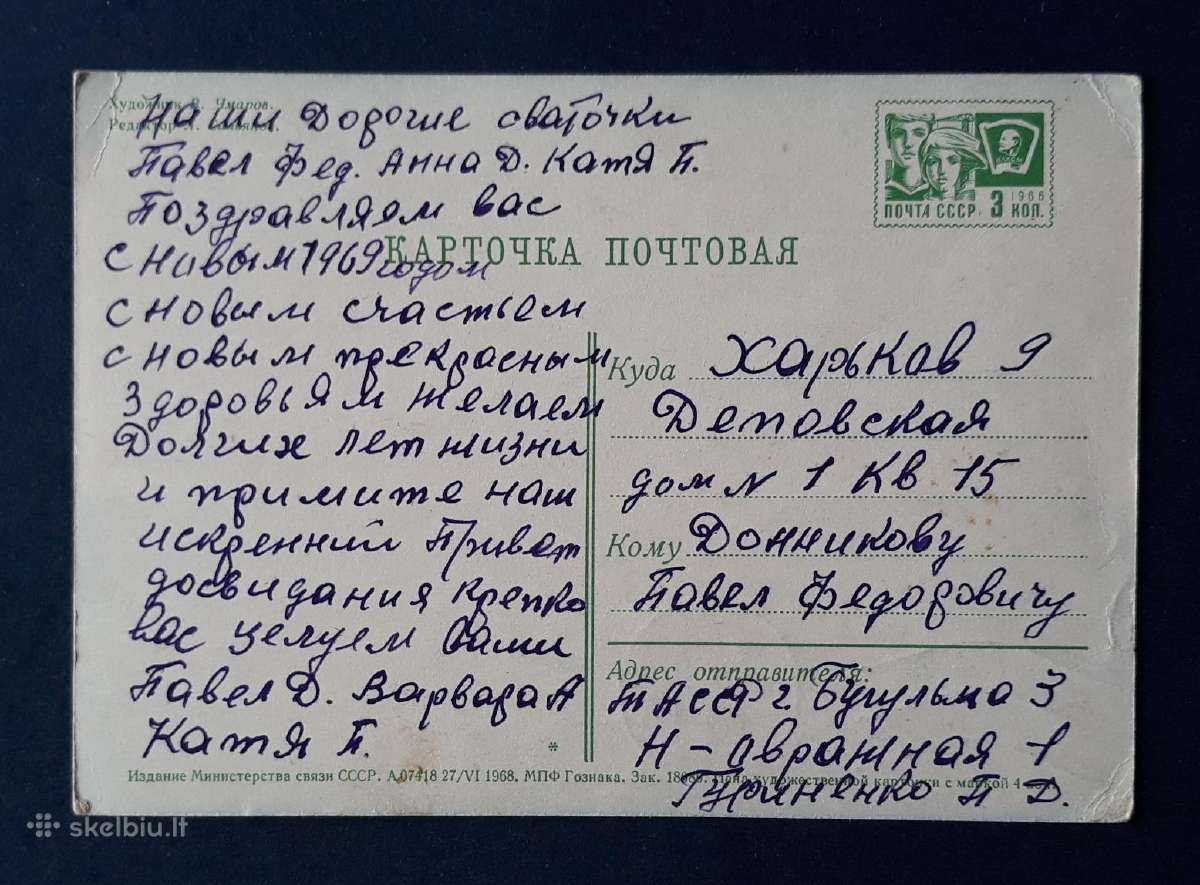 Художник В. Чмаров.
Редактор
Наши Дорогие сваточки
Павел Фед. Анна Д. Катя П.
Поздравляем вас
с нивым 1969 годом
с новым счастьем
с новым прекрасным
Здоровьям желаем
Долгих лет жизни
и примите наш
искренний Привет
досвидания крепко
вас целуем Вами
Павел Д. Варвара А
Катя П.
1966
ПОЧТА СССР 3 КОП.
КАРТОЧКА ПОЧТОВАЯ
Куда Харьков 9
Деповская
дом N 1 Кв 15
Кому Донникову
Павел Федоровичу
Адрес отправителя:
ТАССР г Бугульма 3
Н-овражная 1
П Д.
*
Издание Министерства связи СССР. А07418 27/VI 1968. МПФ Гознака. Зак. Цена художественной карточки с маркой 4
skelbiu.lt